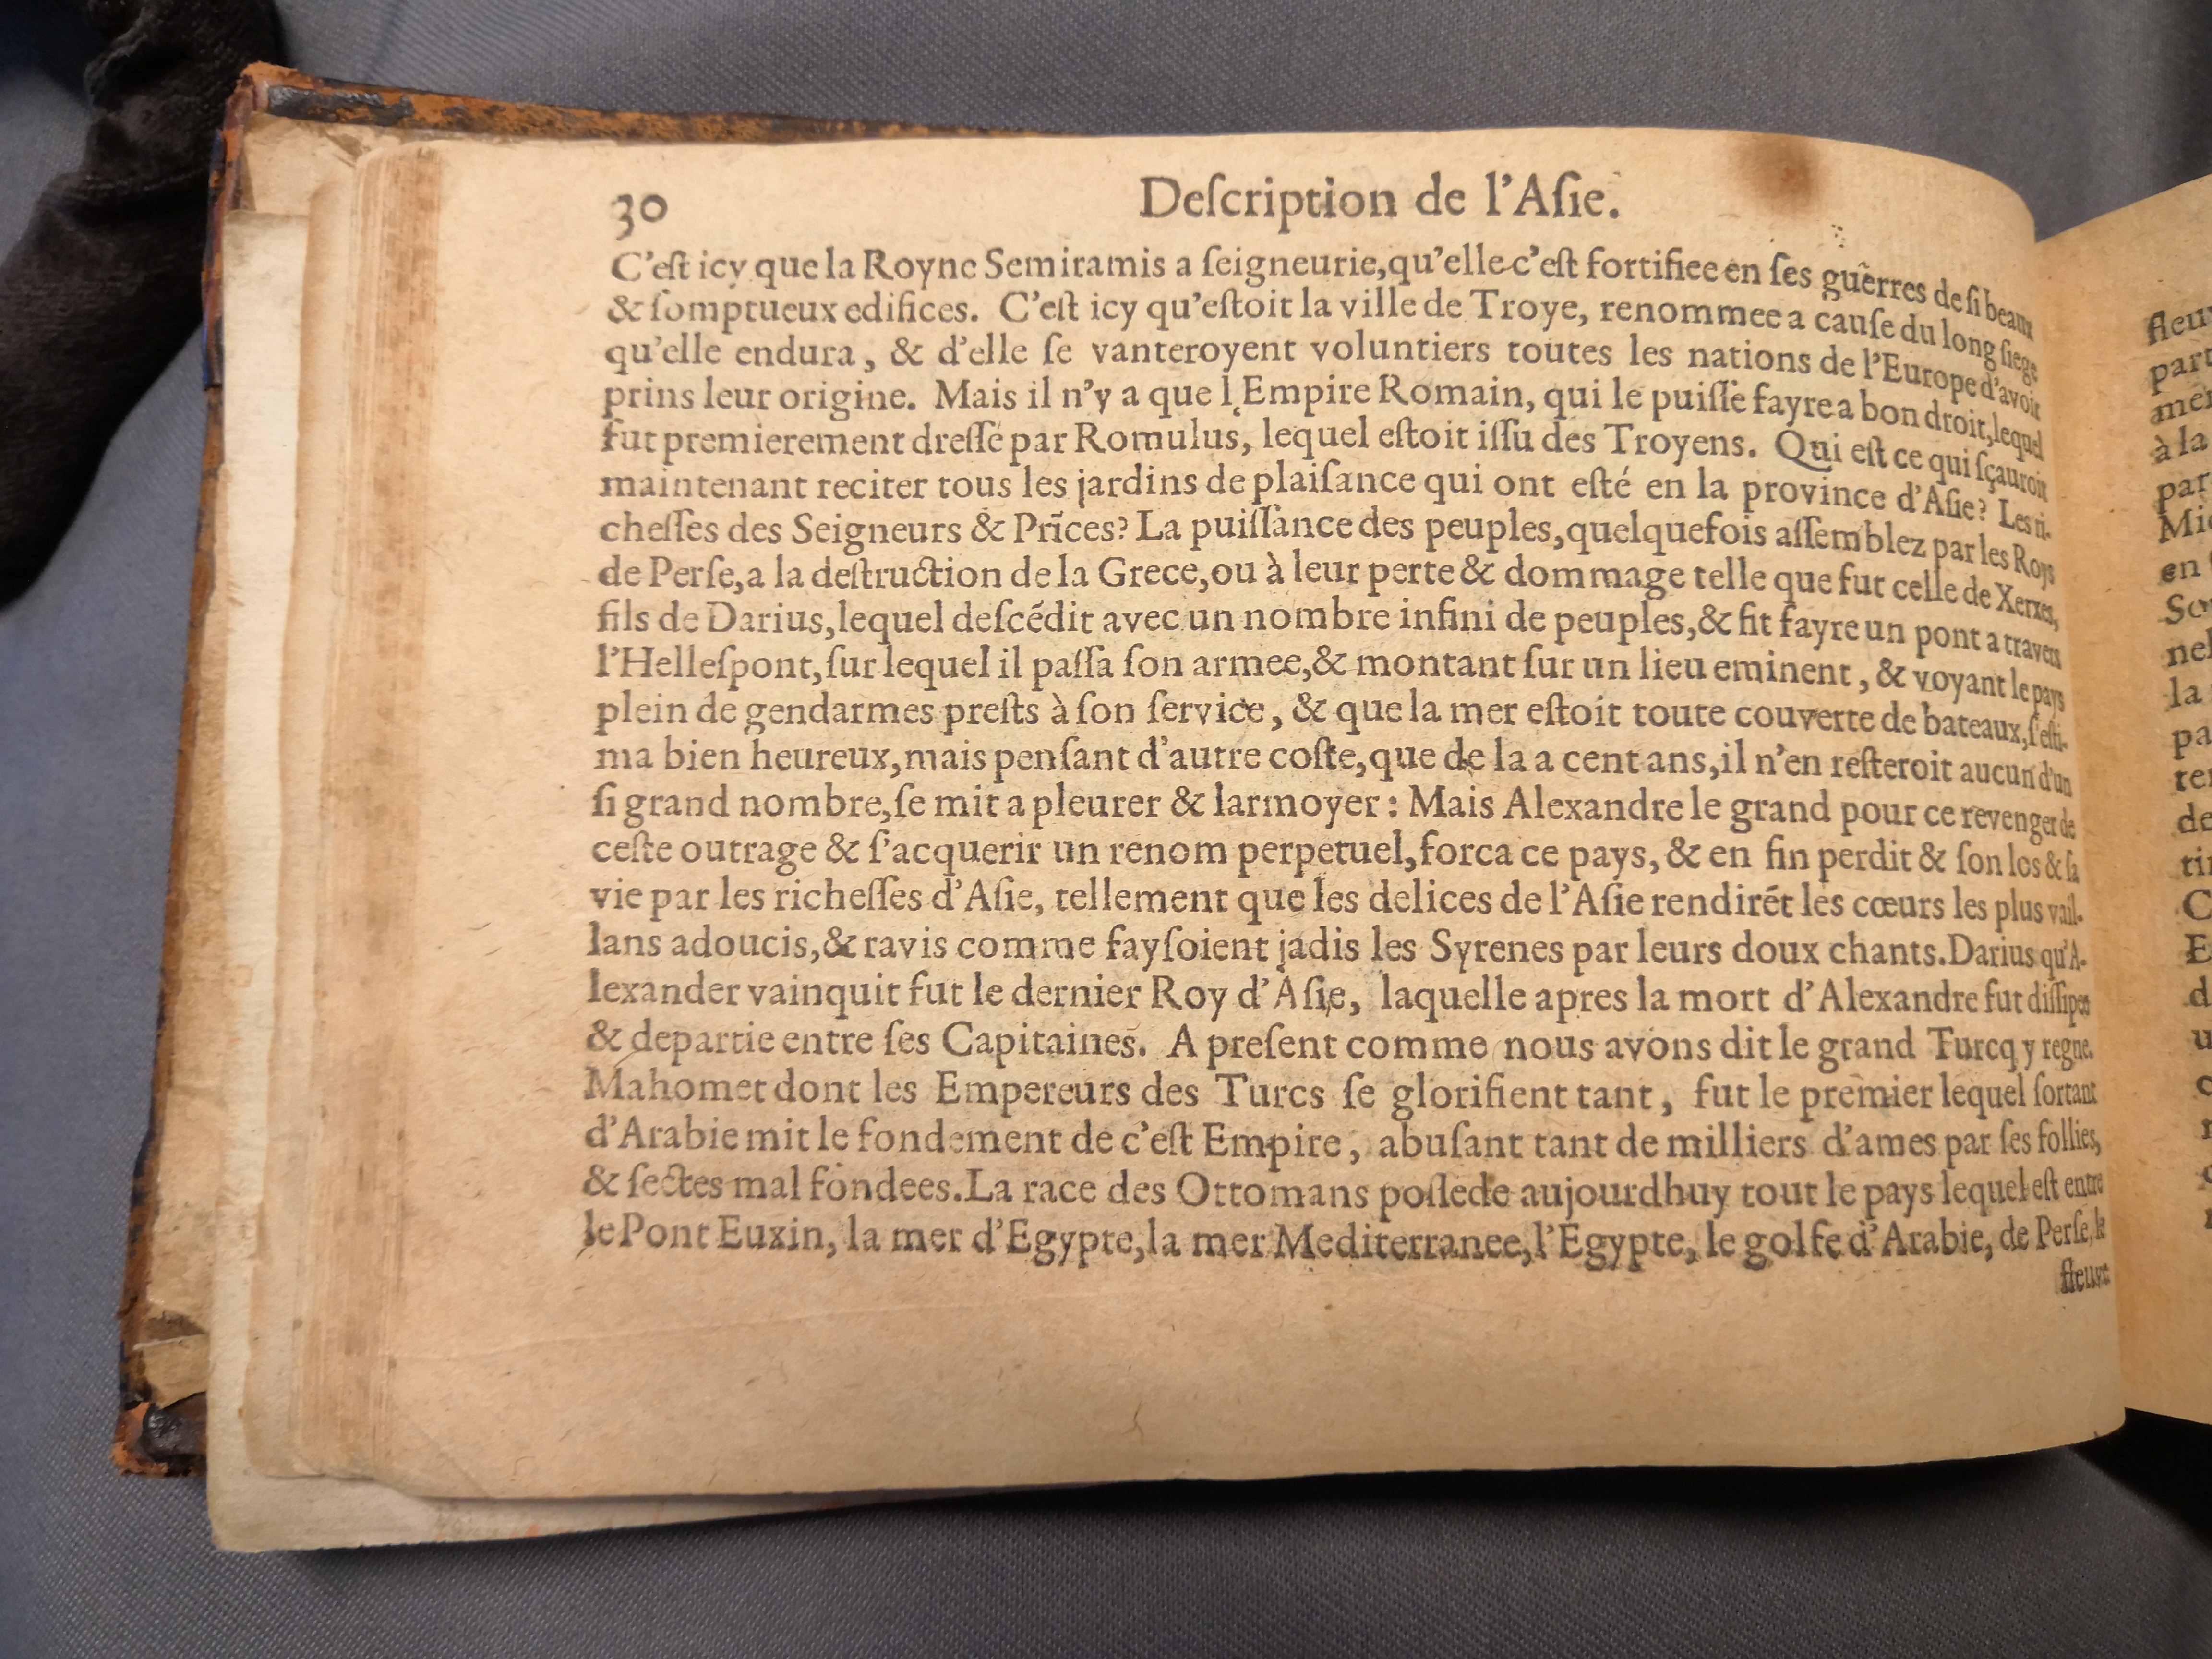 30 Deſcription de l'Aſie.
C'eſt icy que la Royne Semiramis a ſeigneurie,qu'elle c'eſt fortifiee en ſes guerres de ſi beaux
& ſomptueux edifices. C'eſt icy qu'eſtoit la ville de Troye, renommee a cauſe du long ſiege
qu'elle endura, & d'elle ſe vanteroyent voluntiers toutes les nations de l'Europe d'avoir
prins leur origine. Mais il n'y a que l'Empire Romain, qui le puiſſe fayre a bon droit,lequel
fut premierement dreſſé par Romulus, lequel eſtoit iſſu des Troyens. Qui eſt ce qui ſçauroit
maintenant reciter tous les jardins de plaiſance qui ont eſté en la province d'Aſie? Les ri-
cheſſes des Seigneurs & Prīces? La puiſſance des peuples,quelquefois aſſemblez par les Roys
de Perſe,a la deſtruction de la Grece,ou à leur perte & dommage telle que fut celle de Xerxes,
fils de Darius,lequel deſcēdit avec un nombre infini de peuples,& fit fayre un pont a travers
l'Helleſpont,ſur lequel il paſſa ſon armee,& montant ſur un lieu eminent, & voyant le pays
plein de gendarmes preſts à ſon ſervice, & que la mer eſtoit toute couverte de bateaux,ſ'eſti-
ma bien heureux,mais penſant d'autre coſte,que de la a cent ans,il n'en reſteroit aucun d'un
ſi grand nombre,ſe mit a pleurer & larmoyer : Mais Alexandre le grand pour ce revenger de
ceſte outrage & ſ'acquerir un renom perpetuel,forca ce pays, & en fin perdit & ſon los & ſa
vie par les richeſſes d'Aſie, tellement que les delices de l'Aſie rendirēt les cœurs les plus vail-
lans adoucis,& ravis comme fayſoient jadis les Syrenes par leurs doux chants.Darius qu'A-
lexander vainquit fut le dernier Roy d'Aſie, laquelle apres la mort d'Alexandre fut diſſipee
& departie entre ſes Capitaines. A preſent comme nous avons dit le grand Turcq y regne.
Mahomet dont les Empereurs des Turcs ſe glorifient tant, fut le premier lequel ſortant
d'Arabie mit le fondement de c'eſt Empire, abuſant tant de milliers d'ames par ſes follies,
& ſectes mal fondees.La race des Ottomans poſſede aujourdhuy tout le pays lequel eſt entre
le Pont Euxin, la mer d'Egypte,la mer Mediterranee,l'Egypte, le golfe d'Arabie, de Perſe, le
fleuve
fleu
part
à la
par
en
la